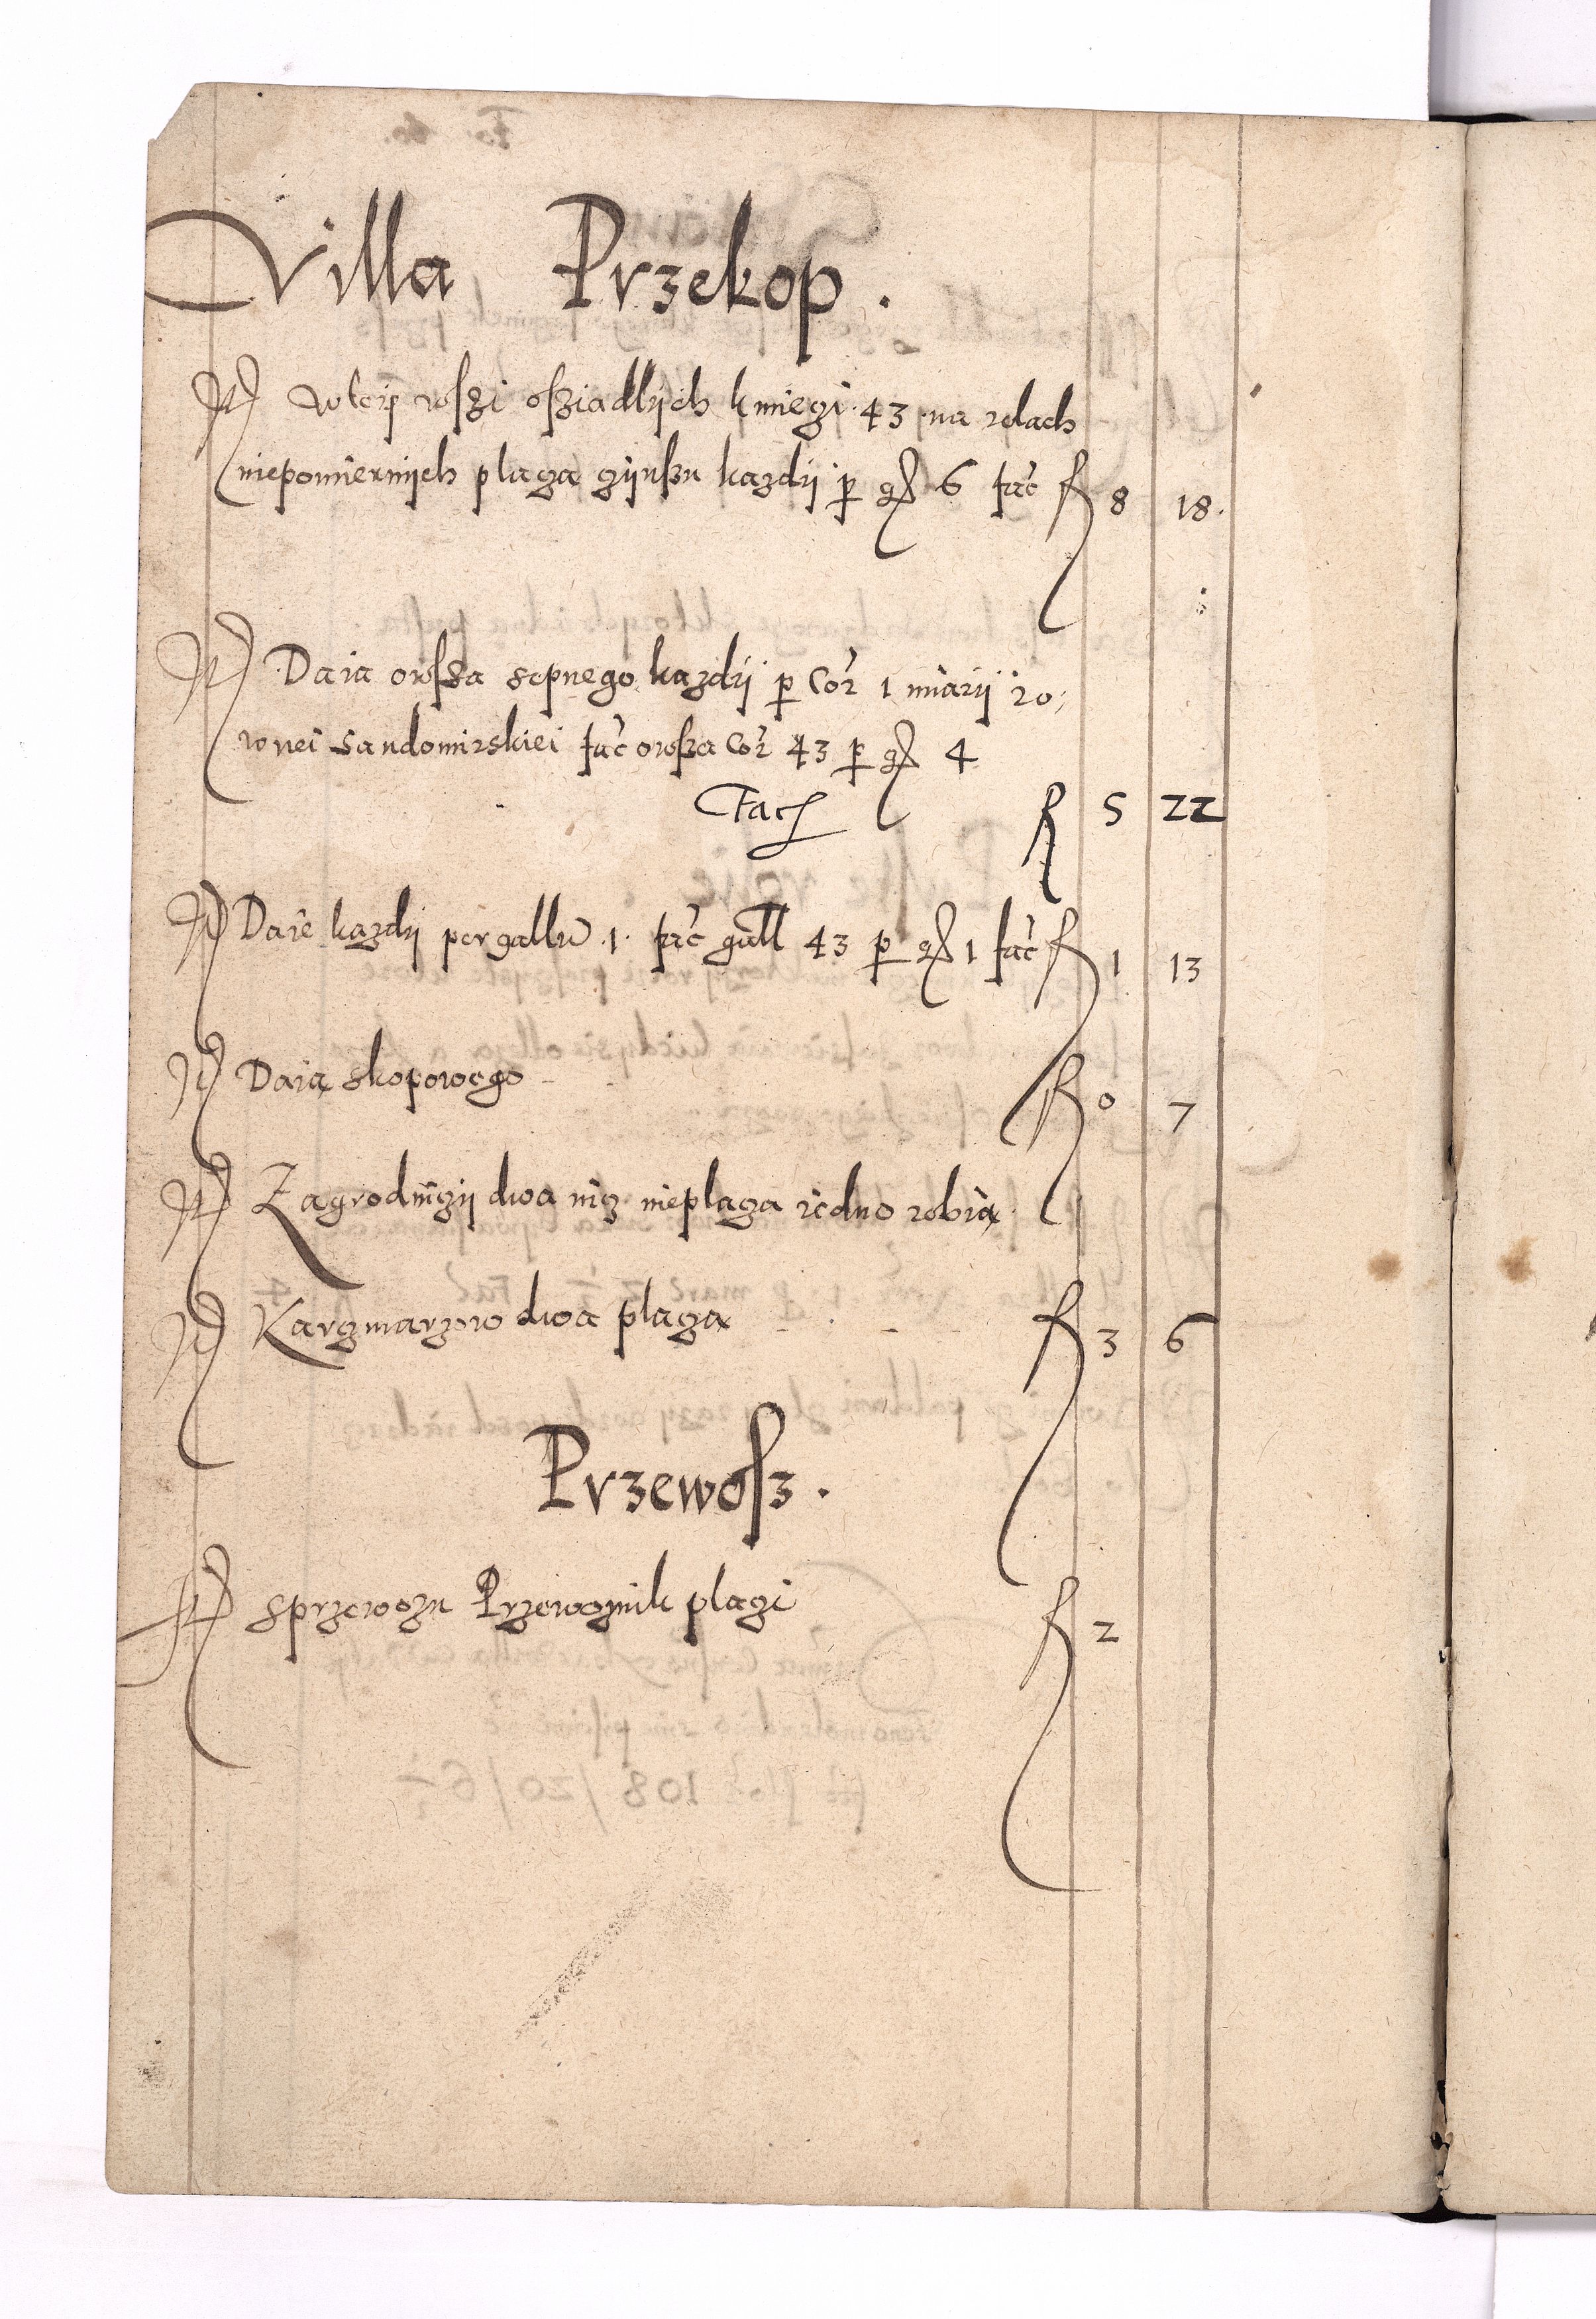 Villa Przekop.
It wteÿ wsżi osżiadlÿch kmiegi 43 na rolach
niepomiernÿch plaga gÿnszu kazdÿ p gr 6 fac̃ fl 8 18.
It Daia owssa sepnego kazdÿ p Cor 1 miarÿ ro,
wnei Sandomirskiei fac̃ owsza Cor 43 p gr 4
Fac fl 5 22
It Daie kazdÿ per gallũ 1. fac̃ gall 43 p gr 1 fac̃ fl 1 13
It Daią skopowego fl 0 7
It Zagrodnigÿ dwa nig nieplaga iedno robią.
It Kargmarzow dwa plaga fl 3 6
Przewosz.
It sprzewozu Przewoznik plagi fl 2